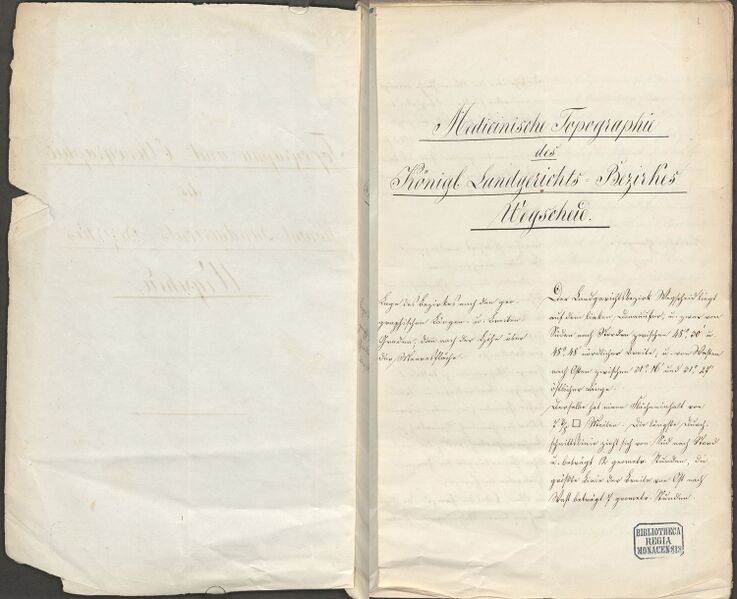 Medicinische Topographie
des
Königl. Landgerichts-Bezirkes
Wegscheid.
Lage des Bezirkes nach den geo-
graphischen Längen- u. Breiten-
Graden, dann nach der Höhe über
der Meeresfläche.
Der Landgerichtsbezirk Wegscheid liegt
auf dem linken Donauufer, u. zwar von
Süden nach Norden zwischen
nördlicher Breite, u. von Westen
nach Osten zwischen
östlicher Länge.
Derselbe hat einen Flächeninhalt von
□ Meilen. Die längste Durch-
schnittslinie zieht sich von Süd nach Nord
u. beträgt 12 geometr. Stunden, die
größte Linie der Breite von Ost nach
West beträgt 7 geometr. Stunden.
BIBLIOTHECA
REGIA
MONACENSIS